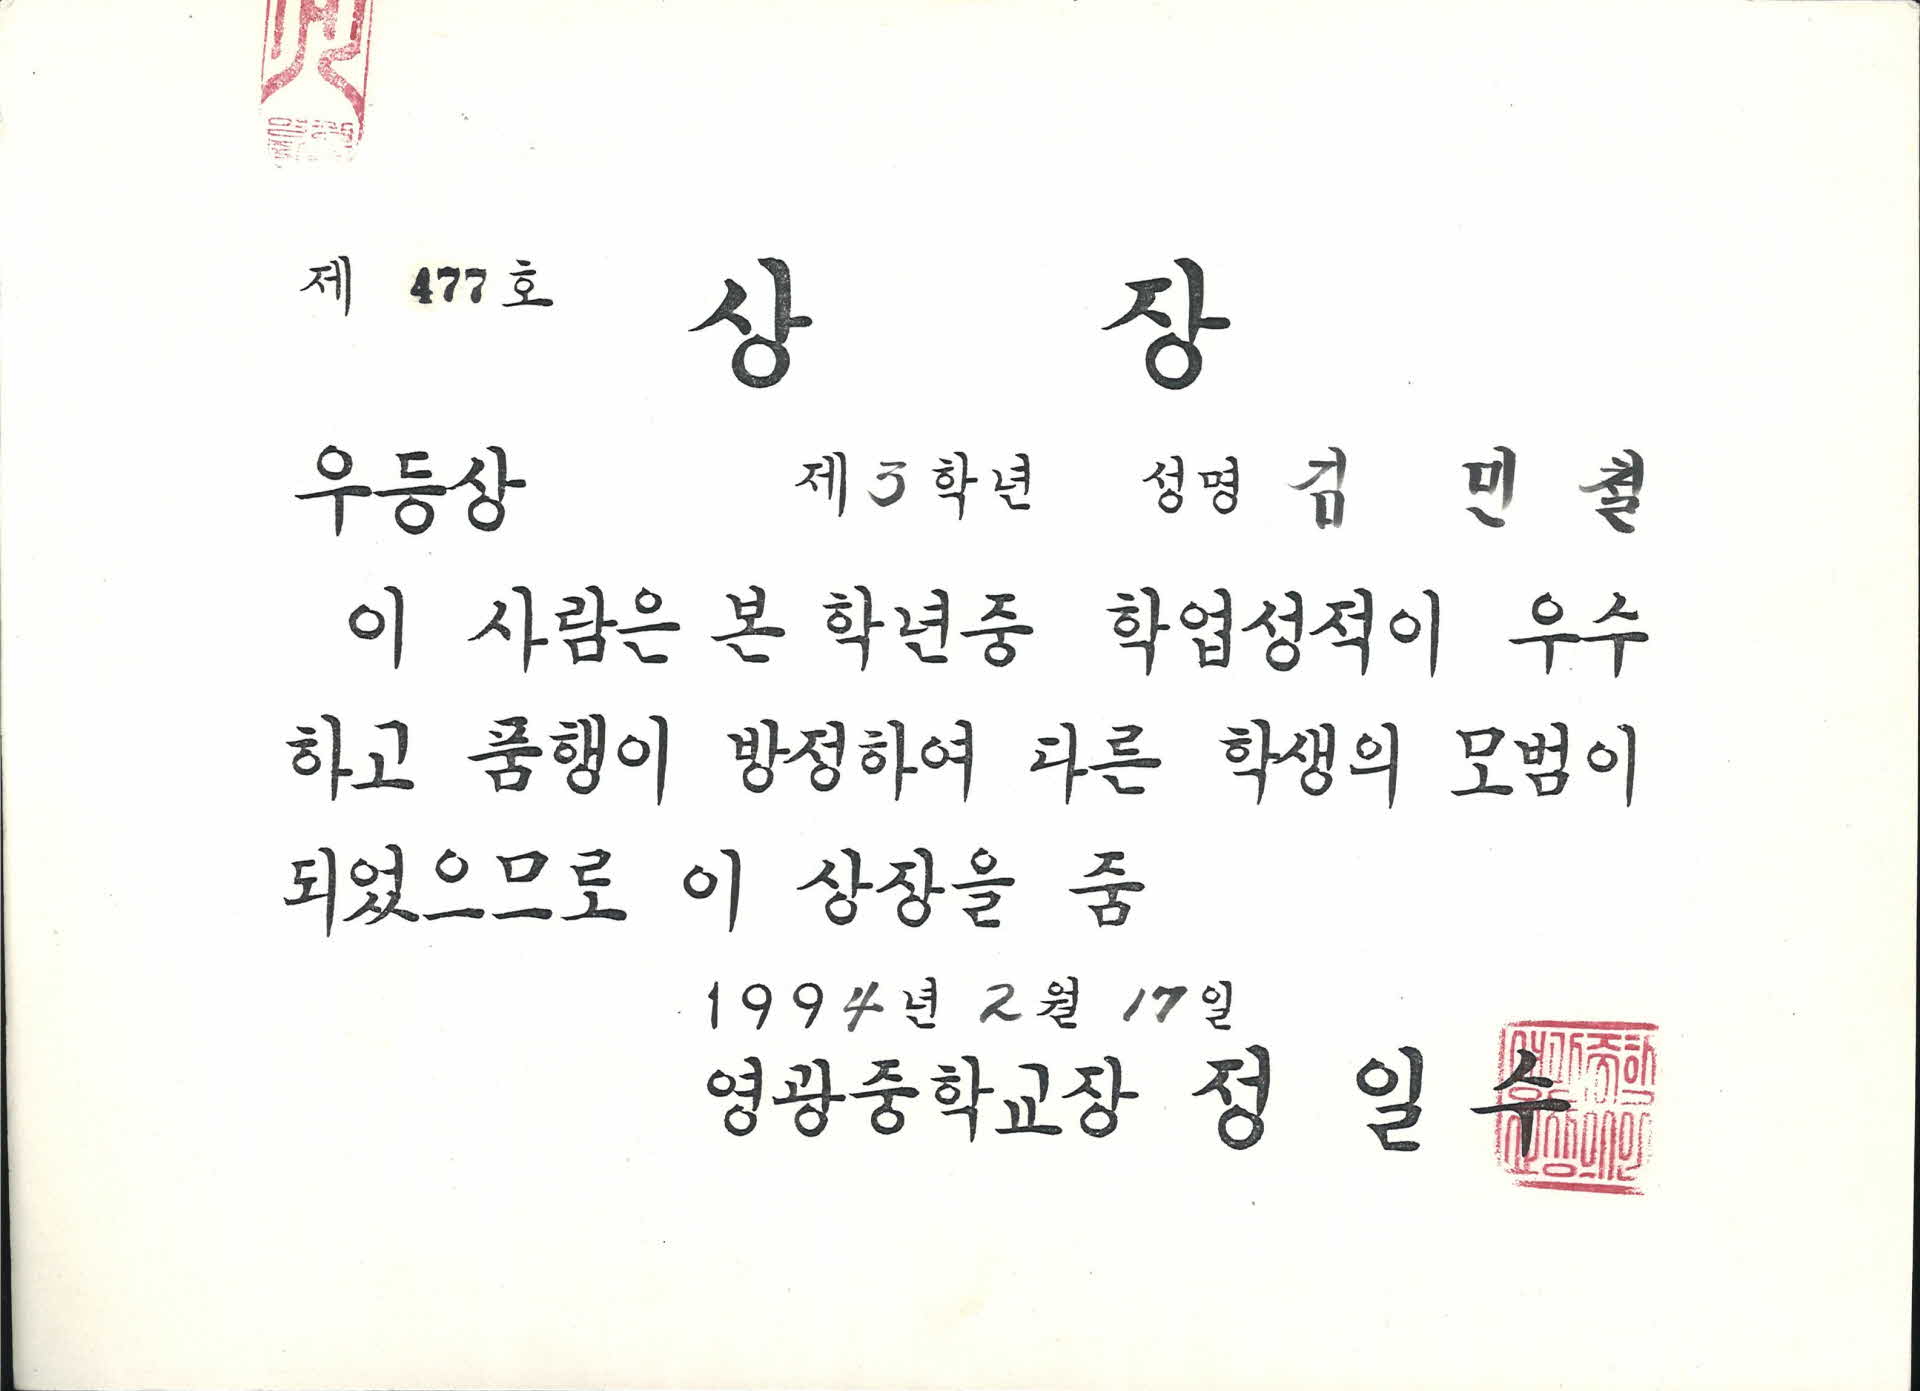 제 477호
상 장
우등상 제3학년 성명 김 민 철
이 사람은 본 학년중 학업성적이 우수
하고 품행이 방정하여 다른 학생의 모범이
되었으므로 이 상장을 줌
1994년 2월 17일
영광중학교장 정 일 수